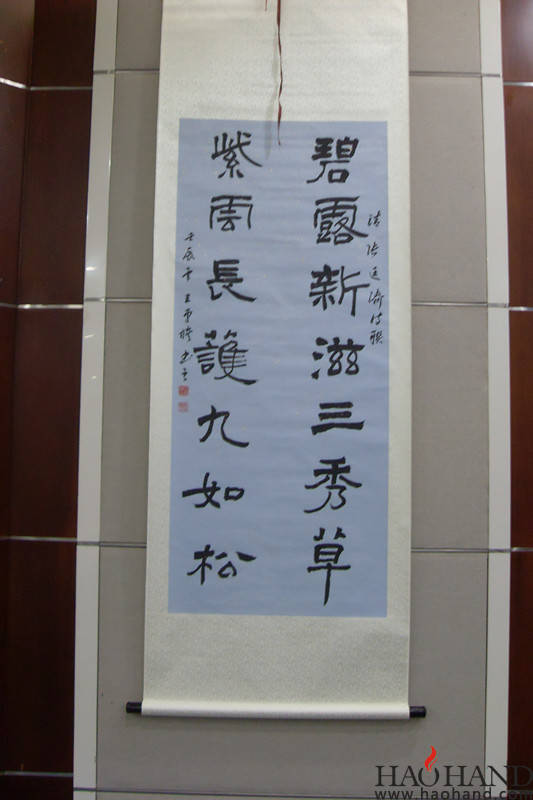 碧露新滋三秀草
清張廷濟詩聯
紫雲長護九如松
壬辰年王
書
HAOHAND
www.haohand.com